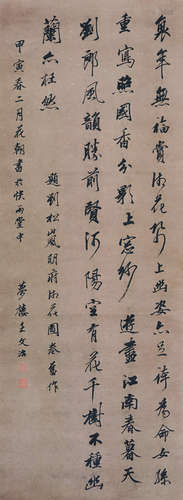 衰年無福賞湘花紙上幽姿亦足誇為命女孫
重寫照國香分影上窗紗 遊盡江南春暮天
劉郎風韻勝前賢河陽空有花千樹不種幽
蘭亦枉然
題劉松嵐明府湘花圖卷舊作
甲寅春二月花朝書於快雨堂中
夢樓王文治